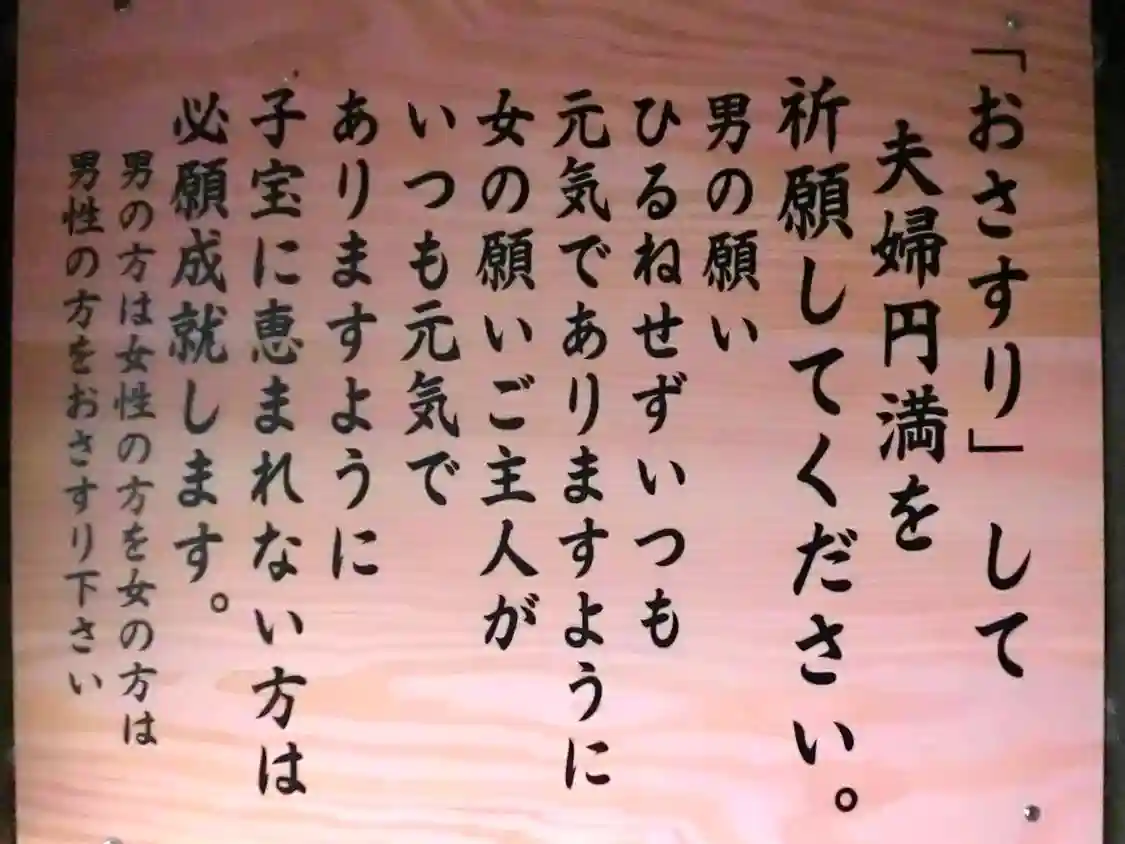 「おさすり」して
夫婦円満を
祈願してください。
男の願い
ひるねせずいつも
元気でありますように
女の願いご主人が
いつも元気で
ありますように
子宝に恵まれない方は
必願成就します。
男の方は女性の方を女の方は
男性の方をおさすり下さい